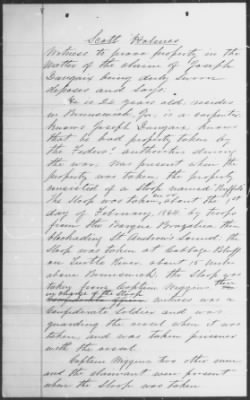 Scott Holmes
Witness to prove property in the
matter of the claim of Joseph
Dangaix being duly sworn
deposes and says.
He is 28 years old, resides
in Brunswick, Ga, is a carpenter.
Knows Joseph Dangaix, know
that he had property taken by
the Federal authorities during
the war. Was present when the
property was taken, the property
consisted of a sloop named Buffalo
The sloop was taken, about the 1st
day of February 1864 by troops
from the Barque Braziliera, then
blockading St Andrew's Sound. The
sloop was taken at Cabbage Bluff
on Turtle River, about 15 miles
above Brunswick. The sloop was
taken from Captain Wiggins then
in charge of the sloop
witness was a
Confederate Soldier and was
guarding the vessel when it was
taken, and was taken prisoner
with the vessel.
Captain Wiggins two other men
and the claimant were present
when the sloop was taken